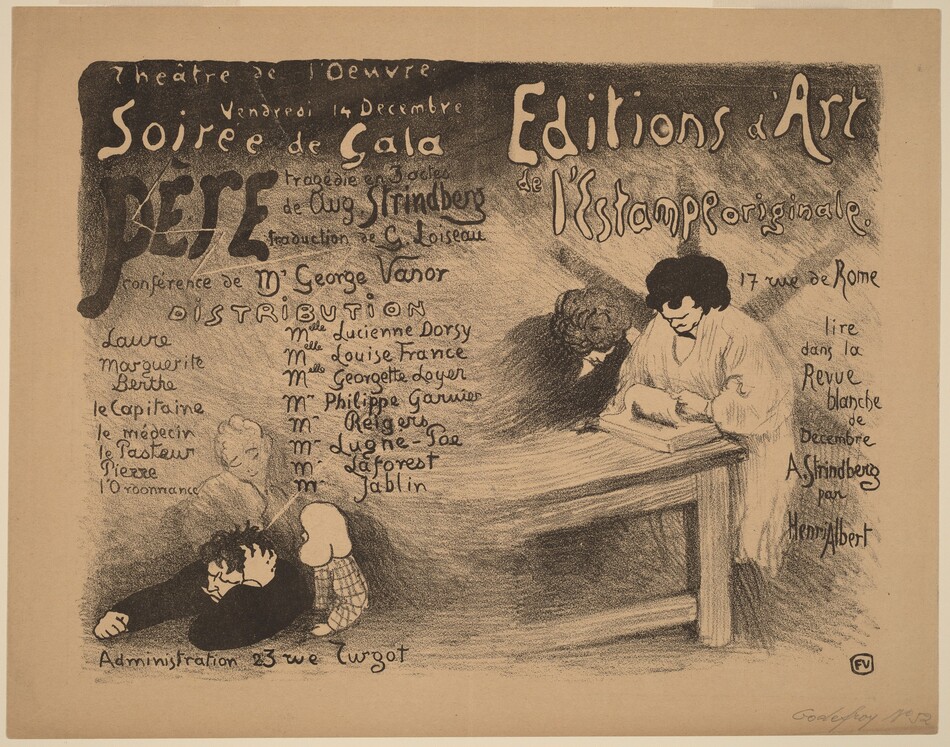 Theâtre de l'Oeuvre
Vendredi 14 Decembre
Soirée de Gala
PÈRE
tragédie en 3 actes
de Aug. Strindberg
traduction de G. Loiseau
conférence de Mr George Vanor
DISTRIBUTION
Laure
Marguerite
Berthe
le Capitaine
le médecin
le Pasteur
Pierre
l'Ordonnance
Melle Lucienne Dorsy
Melle Louise France
Melle Georgette Loyer
Mr Philippe Garnier
Mr Reigers
Mr Lugne-Poe
Mr Laforest
Mr Jablin
Administration 23 rue Turgot
Editions d'Art
de
l'Estampe originale.
17 rue de Rome
lire
dans la
Revue
blanche
de
Decembre
A. Strindberg
par
Henri Albert
FV
Godefroy No 52